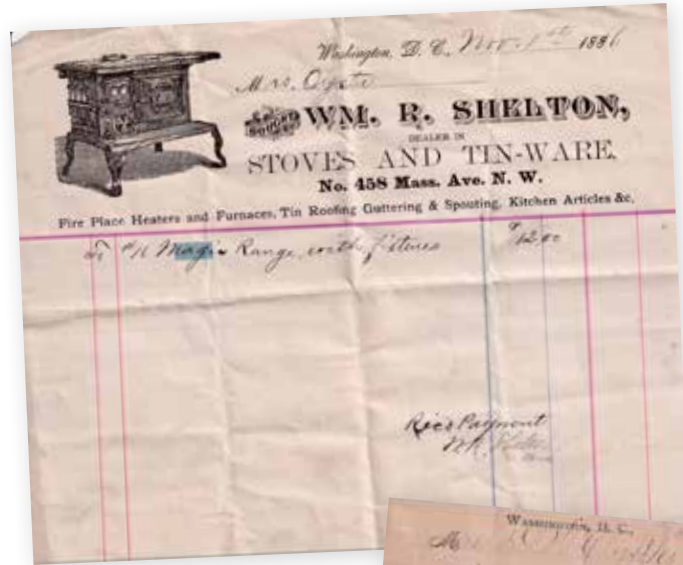 Washington, D. C., Nov. 1st 1886
Mrs. Oyste
BOUGHT OF WM. R. SHELTON,
DEALER IN
STOVES AND TIN-WARE.
No. 458 Mass. Ave. N. W.
Fire Place Heaters and Furnaces, Tin Roofing Guttering & Spouting, Kitchen Articles &c,
Magic Range with fixtures $12.00
Recd Payment
W.R.
WASHINGTON, D. C.